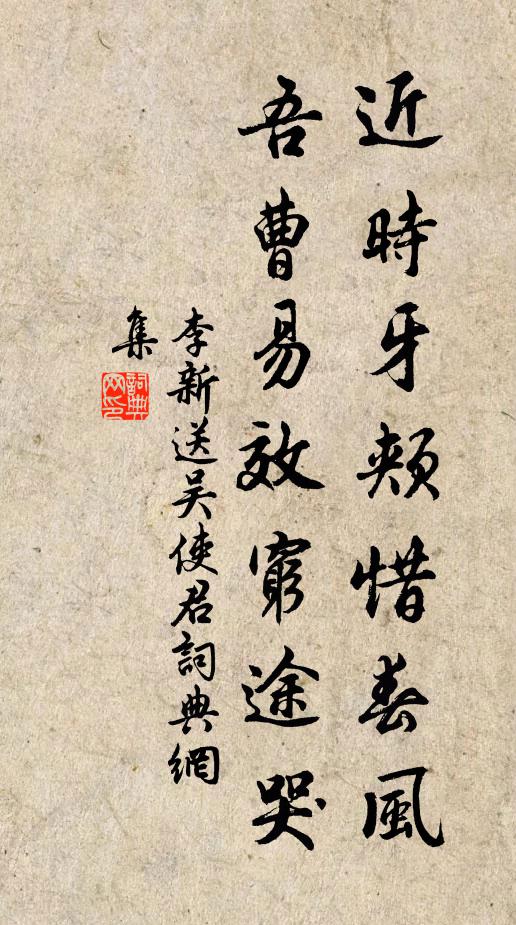 近時牙頰惜春風
吾曹易效窮途哭
李新送吳使君詞典網
集
詞典
网印